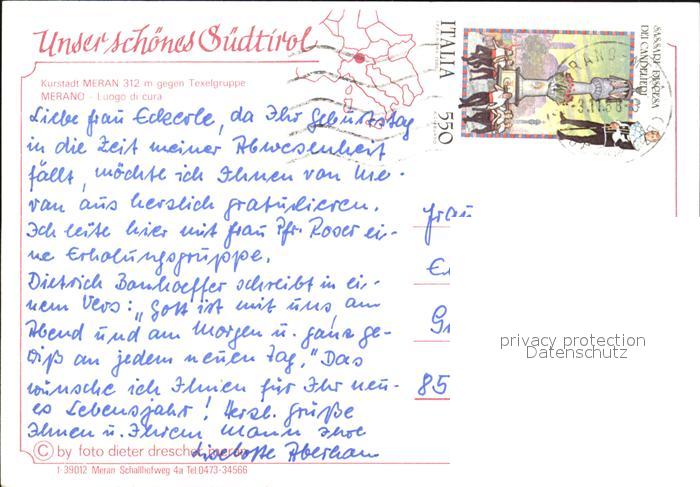 Unser schönes Südtirol
Kurstadt MERAN 312 m gegen Texelgruppe
MERANO - Luogo di cura
Liebe Frau Eckerle, da Ihr Geburtstag
in die Zeit meiner Abwesenheit
fällt, möchte ich Ihnen von Me-
ran aus herzlich gratulieren.
Ich leite hier mit Frau Pfr. Roser ei-
ne Erholungsgruppe.
Dietrich Bonhoeffer schreibt in ei-
nem Vers: „Gott ist mit uns am
Abend und am Morgen u. ganz ge-
wiß an jedem neuen Tag." Das
wünsche ich Ihnen für Ihr neu-
es Lebensjahr! Herzl. Grüße
Ihnen u. Ihrem Mann Ihre
Liselotte
© by foto dieter drescher, meran
I-39012 Meran Schallhofweg 4a Tel.0473-34566
ITALIA
550
SASSARI: DISCESA
DEI CANDELIERI
Frau
85
privacy protection
Datenschutz